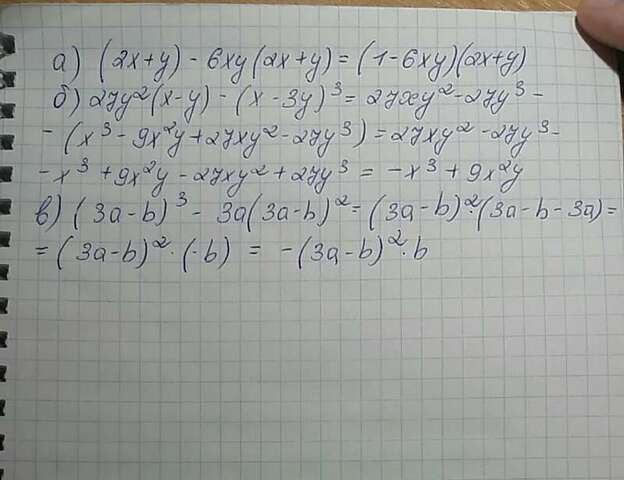 а) (2x+y) - 6xy(2x+y) = (1-6xy)(2x+y)
б) 27y²(x-y) - (x-3y)³ = 27xy² - 27y³ -
- (x³ - 9x²y + 27xy² - 27y³) = 27xy² - 27y³ -
- x³ + 9x²y - 27xy² + 27y³ = -x³ + 9x²y
в) (3a-b)³ - 3a(3a-b)² = (3a-b)²·(3a-b-3a) =
= (3a-b)²·(-b) = -(3a-b)²·b